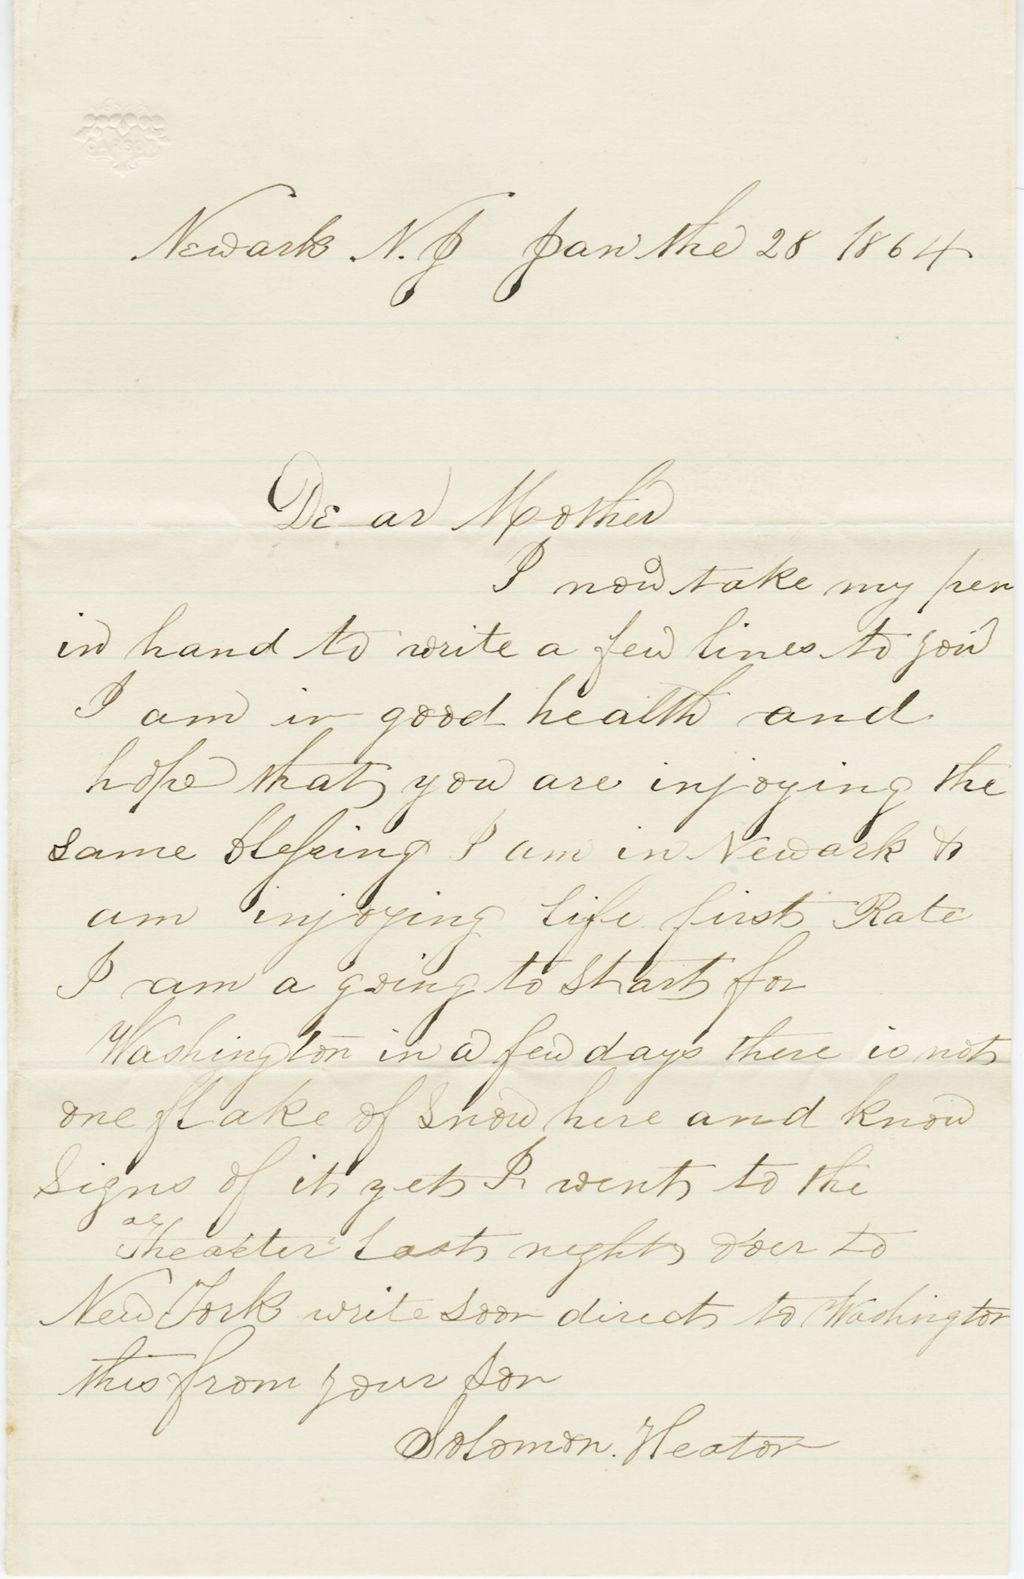 Newark N.J Jan the 28 1864
Dear Mother
I now take my pen
in hand to write a few lines to you
I am in good health and
hope that you are injoying the
same blessing I am in Newark &
am injoying life first Rate
I am a going to start for
Washington in a few days there is not
one flake of snow here and know
signs of it yet I went to the
Theaeter last night over to
New York write soon direct to Washington
this from your son
Solomon. Heaton